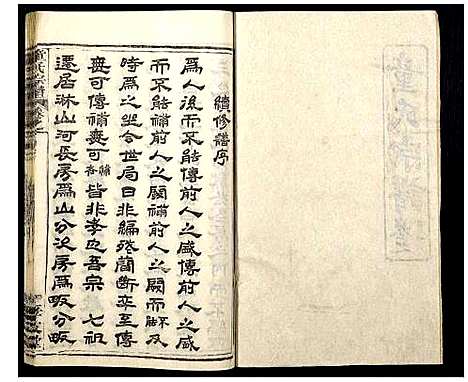 續修譜序
爲人後而不能傳前人之盛傳前人之盛
而不能補前人之闕補前人之闕而不及
時爲之迨今世局日非編殘簡斷卒至傳
無可傳補無可補皆非孝也吾宗七祖
遷居淋山河長房爲山分次房爲畈分畈
童氏宗譜